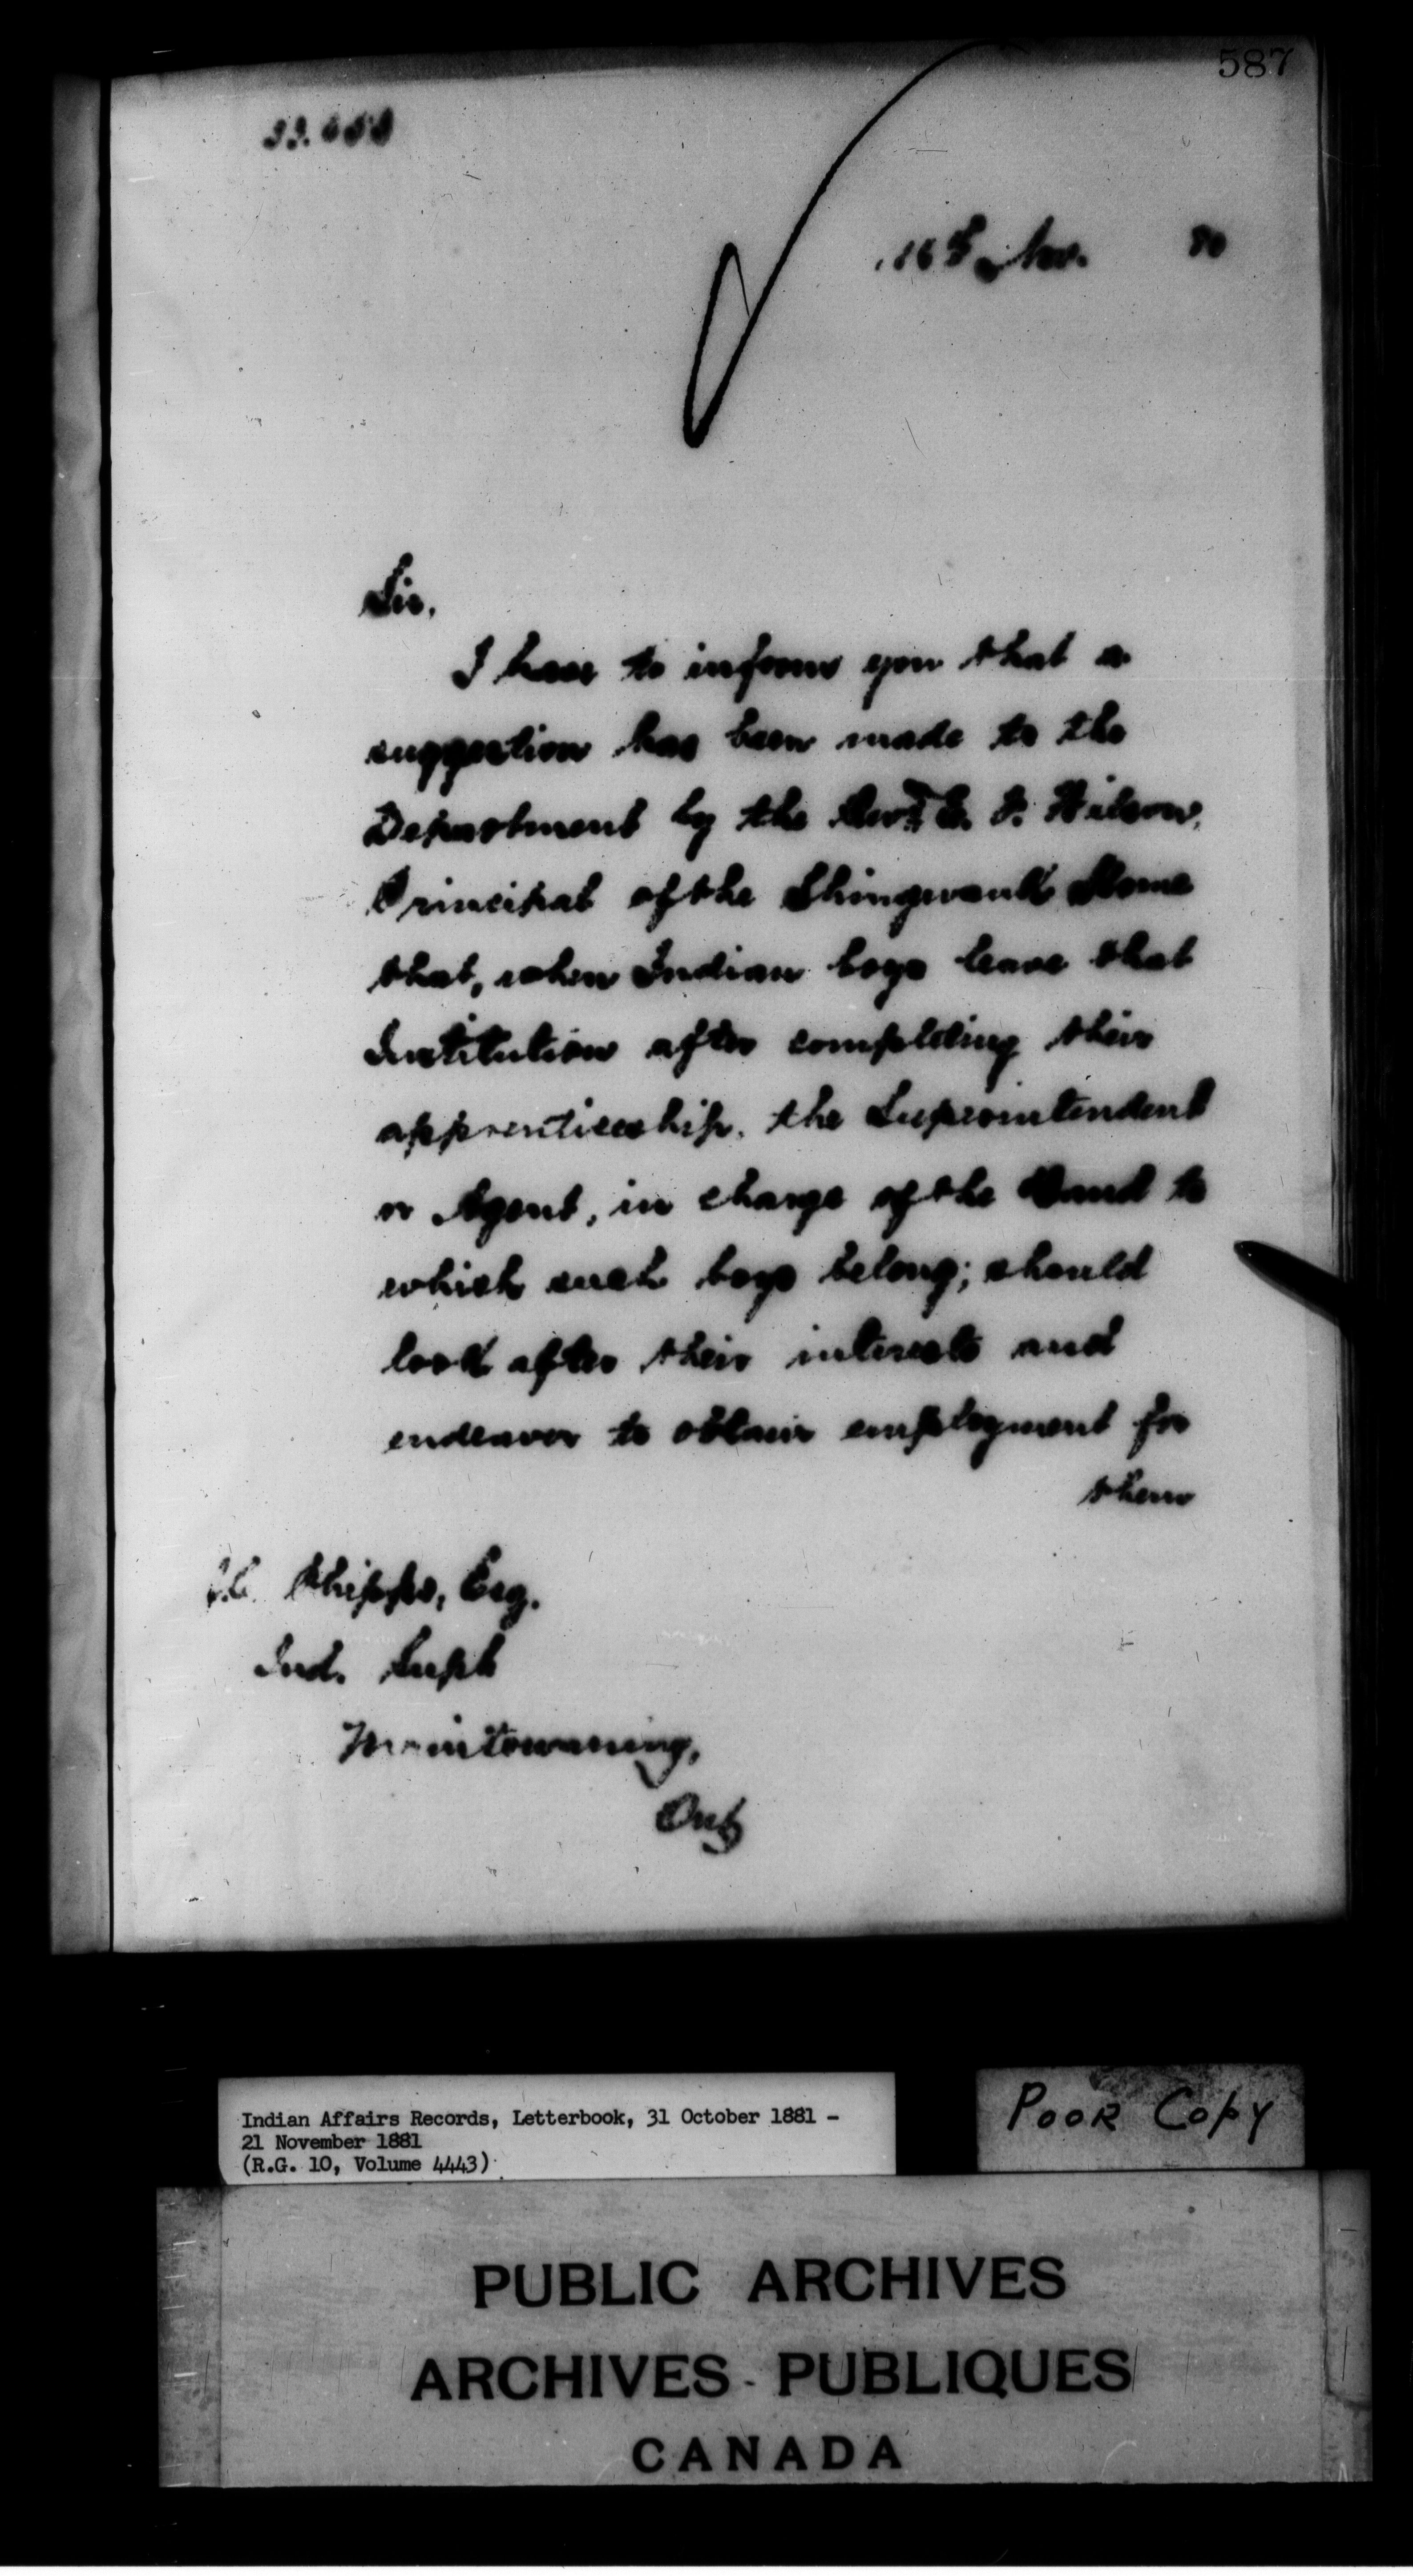 587
16th Nov.
Sir,
I have to inform you that a
suggestion has been made to the
Department by the Revd E. F. Wilson,
Principal of the Shingwauk Home
that, when Indian boys leave that
Institution after completing their
apprenticeship, the Superintendent
or Agent, in charge of the Band to
which such boys belong; should
look after their interests and
endeavor to obtain employment for
them
J.C. Phipps, Esq.
Ind. Supt
Manitowaning,
Ont
Indian Affairs Records, Letterbook, 31 October 1881 -
21 November 1881
(R.G. 10, Volume 4443)
POOR COPY
PUBLIC ARCHIVES
ARCHIVES PUBLIQUES
CANADA